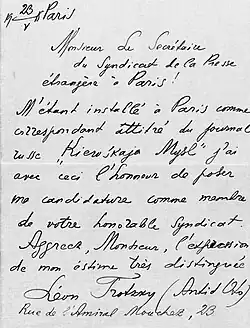 19 23/V 15 Paris
Monsieur Le Secrétaire
du Syndicat de la Presse
étrangère à Paris!
M'étant installé à Paris comme
correspondant attitré du journal
russe "Kiewskaja Mysl" j'ai
avec ceci l'honneur de poser
ma candidature comme membre
de votre honorable Syndicat.
Aggreez, Monsieur, l'expression
de mon éstime très distinguée
Léon Trotzky (Antid Oto)
Rue de l'Amiral Mouchez, 23